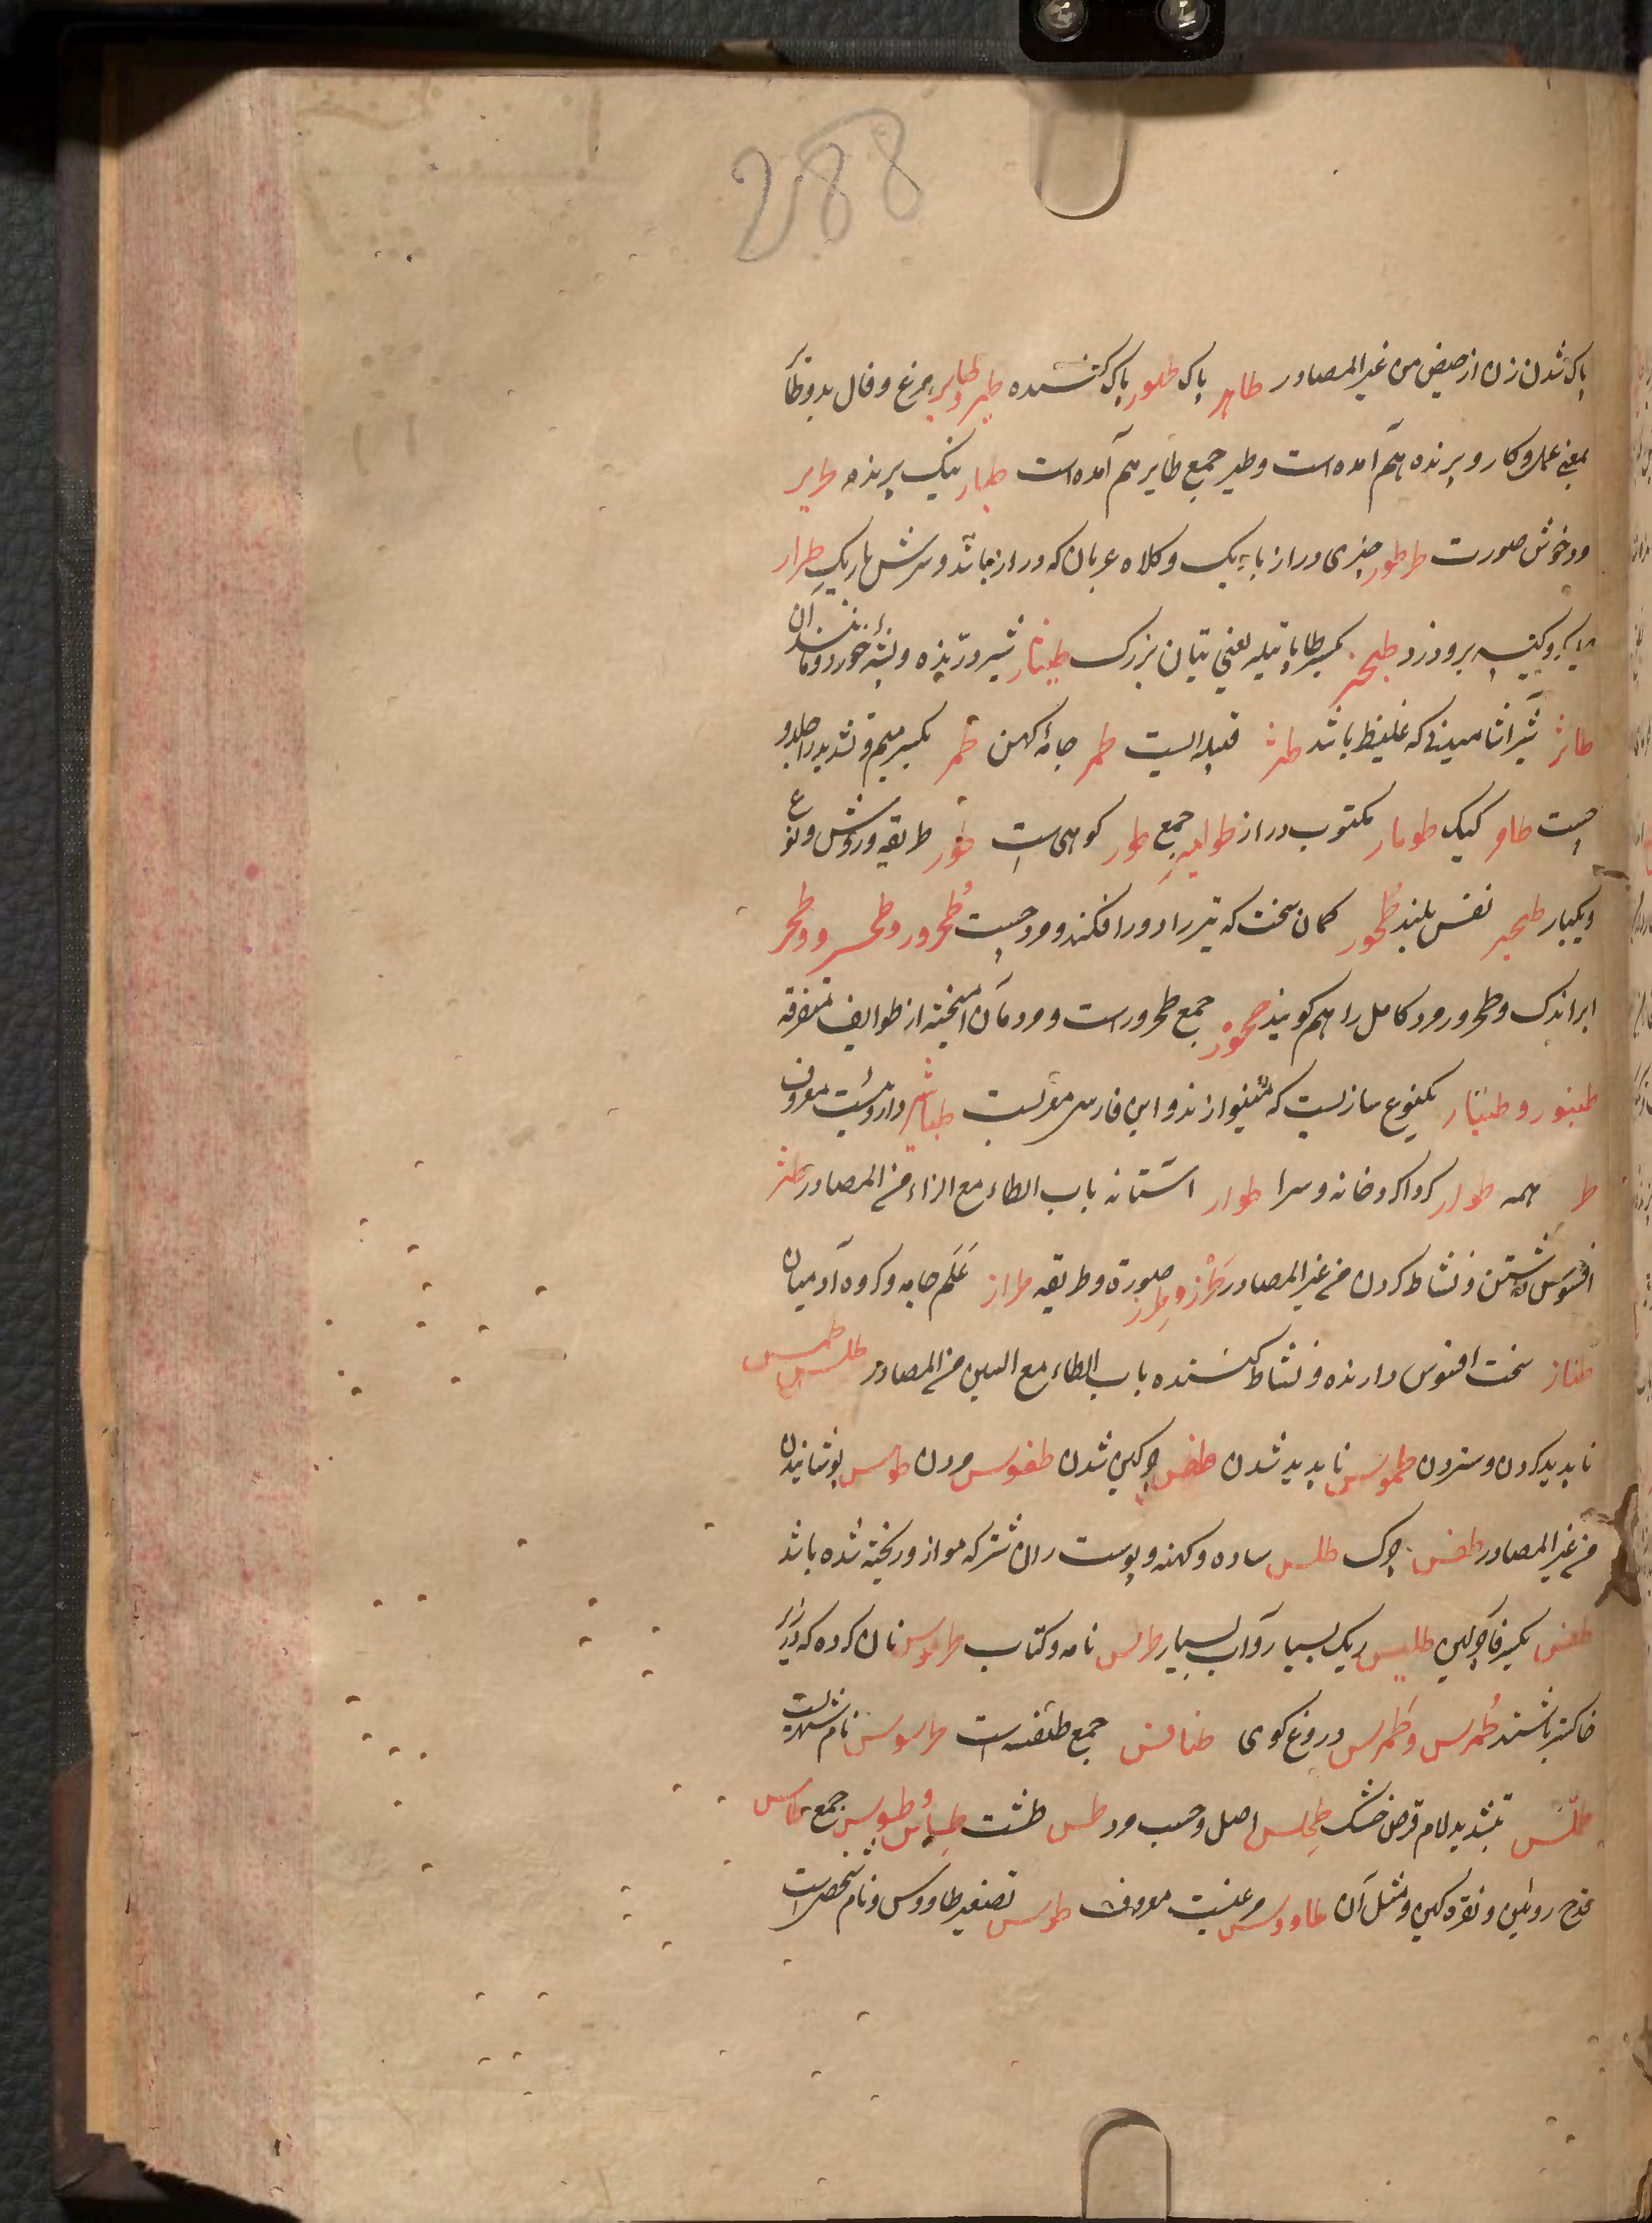 288
پاک شدن زن از حیض من غیر المصادر طاهر پاک طهور پاک کننده طیر و طایر مرغ و فال بد و طایر
بمعنی عمل و کار و پرنده هم آمده است و طیر جمع طایر هم آمده است طیار نیک پرنده طریر
خوش صورت طرطور چیزی دراز باریک و کلاه عربان که دراز باشد و سرش باریک طرار
کیسه برو دزد طنجیر بکسر طا پاتیله یعنی پتیان بزرک طیثار شیر درنده و پشه خورد و مانند آن
طاثر شیر آشامیدنی که غلیظ باشد طثر قبیله ایست طمر جامه کهن طمر بکسر میم و تشدید را
جست طامر کیک طومار مکتوب دراز طوامیر جمع طور کوهی است طور طریقه و روش و نوع
و یکبار طحیر نفس بلند طحور کمان سخت که تیر را دور افکند و مرد چست طحرور و طحر و طخر
ابر اندک و طحرور مرد کامل را هم کویند جمع طحرورست و مردمان آمیخته از طوایف متفرقه
طنبور و طنبار یکنوع سازیست که مینوازند و این فارسی معربست طباشیر داروئیست معروف
همه طوار کرداکرد خانه و سرا طوار آستانه باب الطاء مع الزاء من المصادر طنز
افسوس داشتن و نشاط کردن من غیر المصادر طرز و طرز صورة و طریقه طراز علم جامه و کروه آدمیان
طناز سخت افسوس دارنده و نشاط کننده باب الطاء مع السین من المصادر طلس طمس
ناپدید کردن و ستردن طموس ناپدید شدن طفس چرکین شدن طفوس مردن طوس پوشانیدن
من غیر المصادر طفس چرک طلس ساده و کهنه و پوست ران شتر که مو ازو ریخته شده باشد
طفس بکسر فا چرکین طلیس ریک بسیار و آب بسیار طرس نامه و کتاب طرموس نان کرده که در زیر
خاکستر باشند طمرس و طمرس دروغ کوی طنافس جمع طنفسه است طرسوس نام شهریست
طملس بتشدید لام قرص خشک طخلس اصل و حسب مرد طس طشت طساس و طسوس جمع طاس
قدح روئین و نقره کین و مثل آن طاووس مرغیست معروف طویس تصغیر طاووس و نام شخصی است